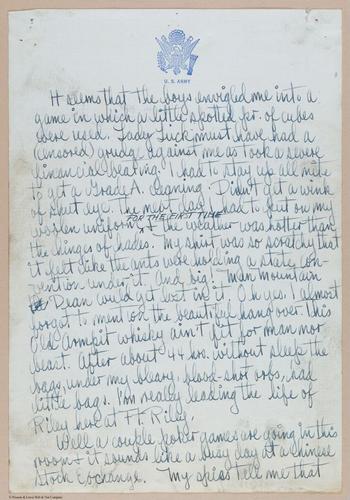 U.S. ARMY
It seems that the boys envigled me into a
game in which a little spotted pr. of cubes
were used. Lady Luck must have had a
(censored) grudge against me as took a severe
financial beating. I had to stay up all nite
to get a Grade A. cleaning. Didn't get a wink
of shut eye. The next day I had to put on my
woolen uniform FOR THE FIRST TIME + the weather was hotter than
the hinges of hades. My shirt was so scratchy that
it felt like the ants were holding a state con-
vention under it. And big! Man Mountain
Dean could get lost in it. Oh yes I almost
forgot to mention the beautiful hangover. This
Old Armpit whisky ain't fit for man nor
beast. After about 44 hrs. without sleep the
bags, under my bleary, blood-shot orbs, had
little bags. I'm really leading the life of
Riley here at Ft. Riley.
Well a couple poker games are going in this
room + it sounds like a busy day at a Chinese
Stock Exchange. My spies tell me that